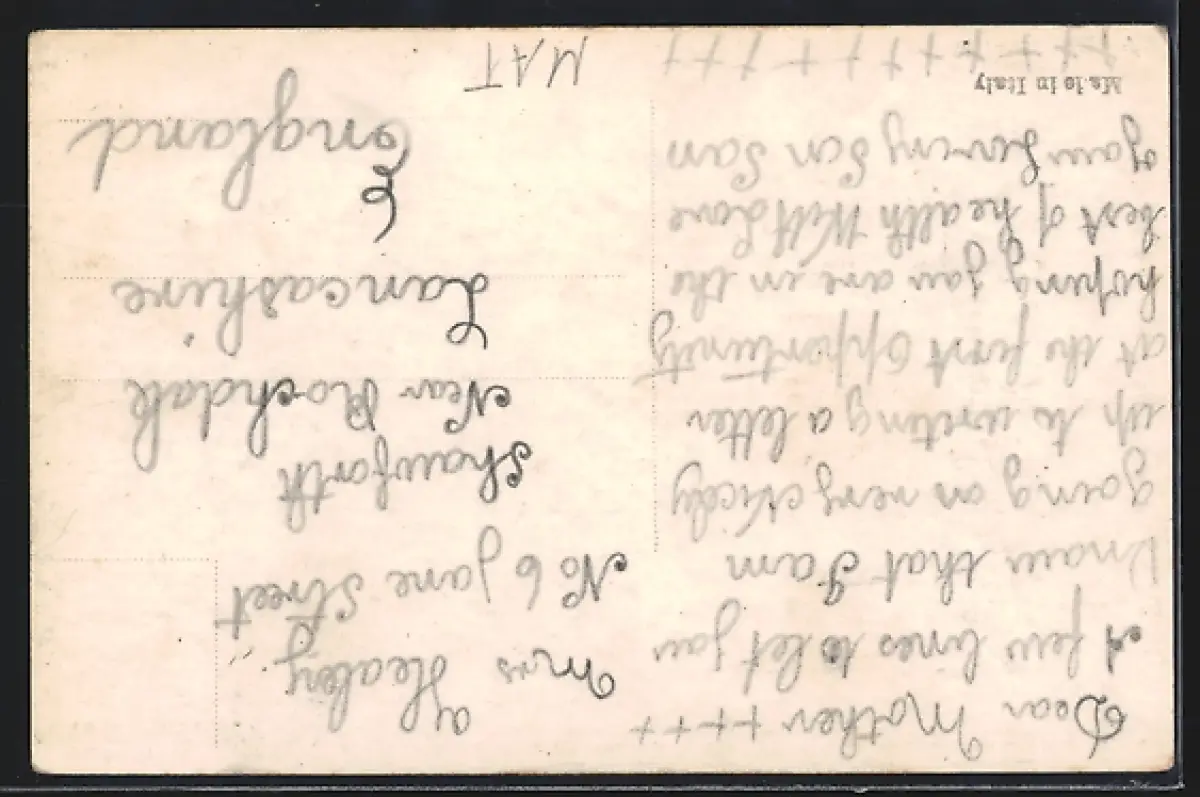 Dear Mother ++++
A few lines to let you
know that I am
going on very Nicely
up to writing a letter
at the first Opportunity
hoping you are in the
best of health With Love
your Loving Son Sam
+++++++++++
Made in Italy
Mrs Healey
No 6 Jane Street
Shawforth
Near Rochdale
Lancashire
England
MAT